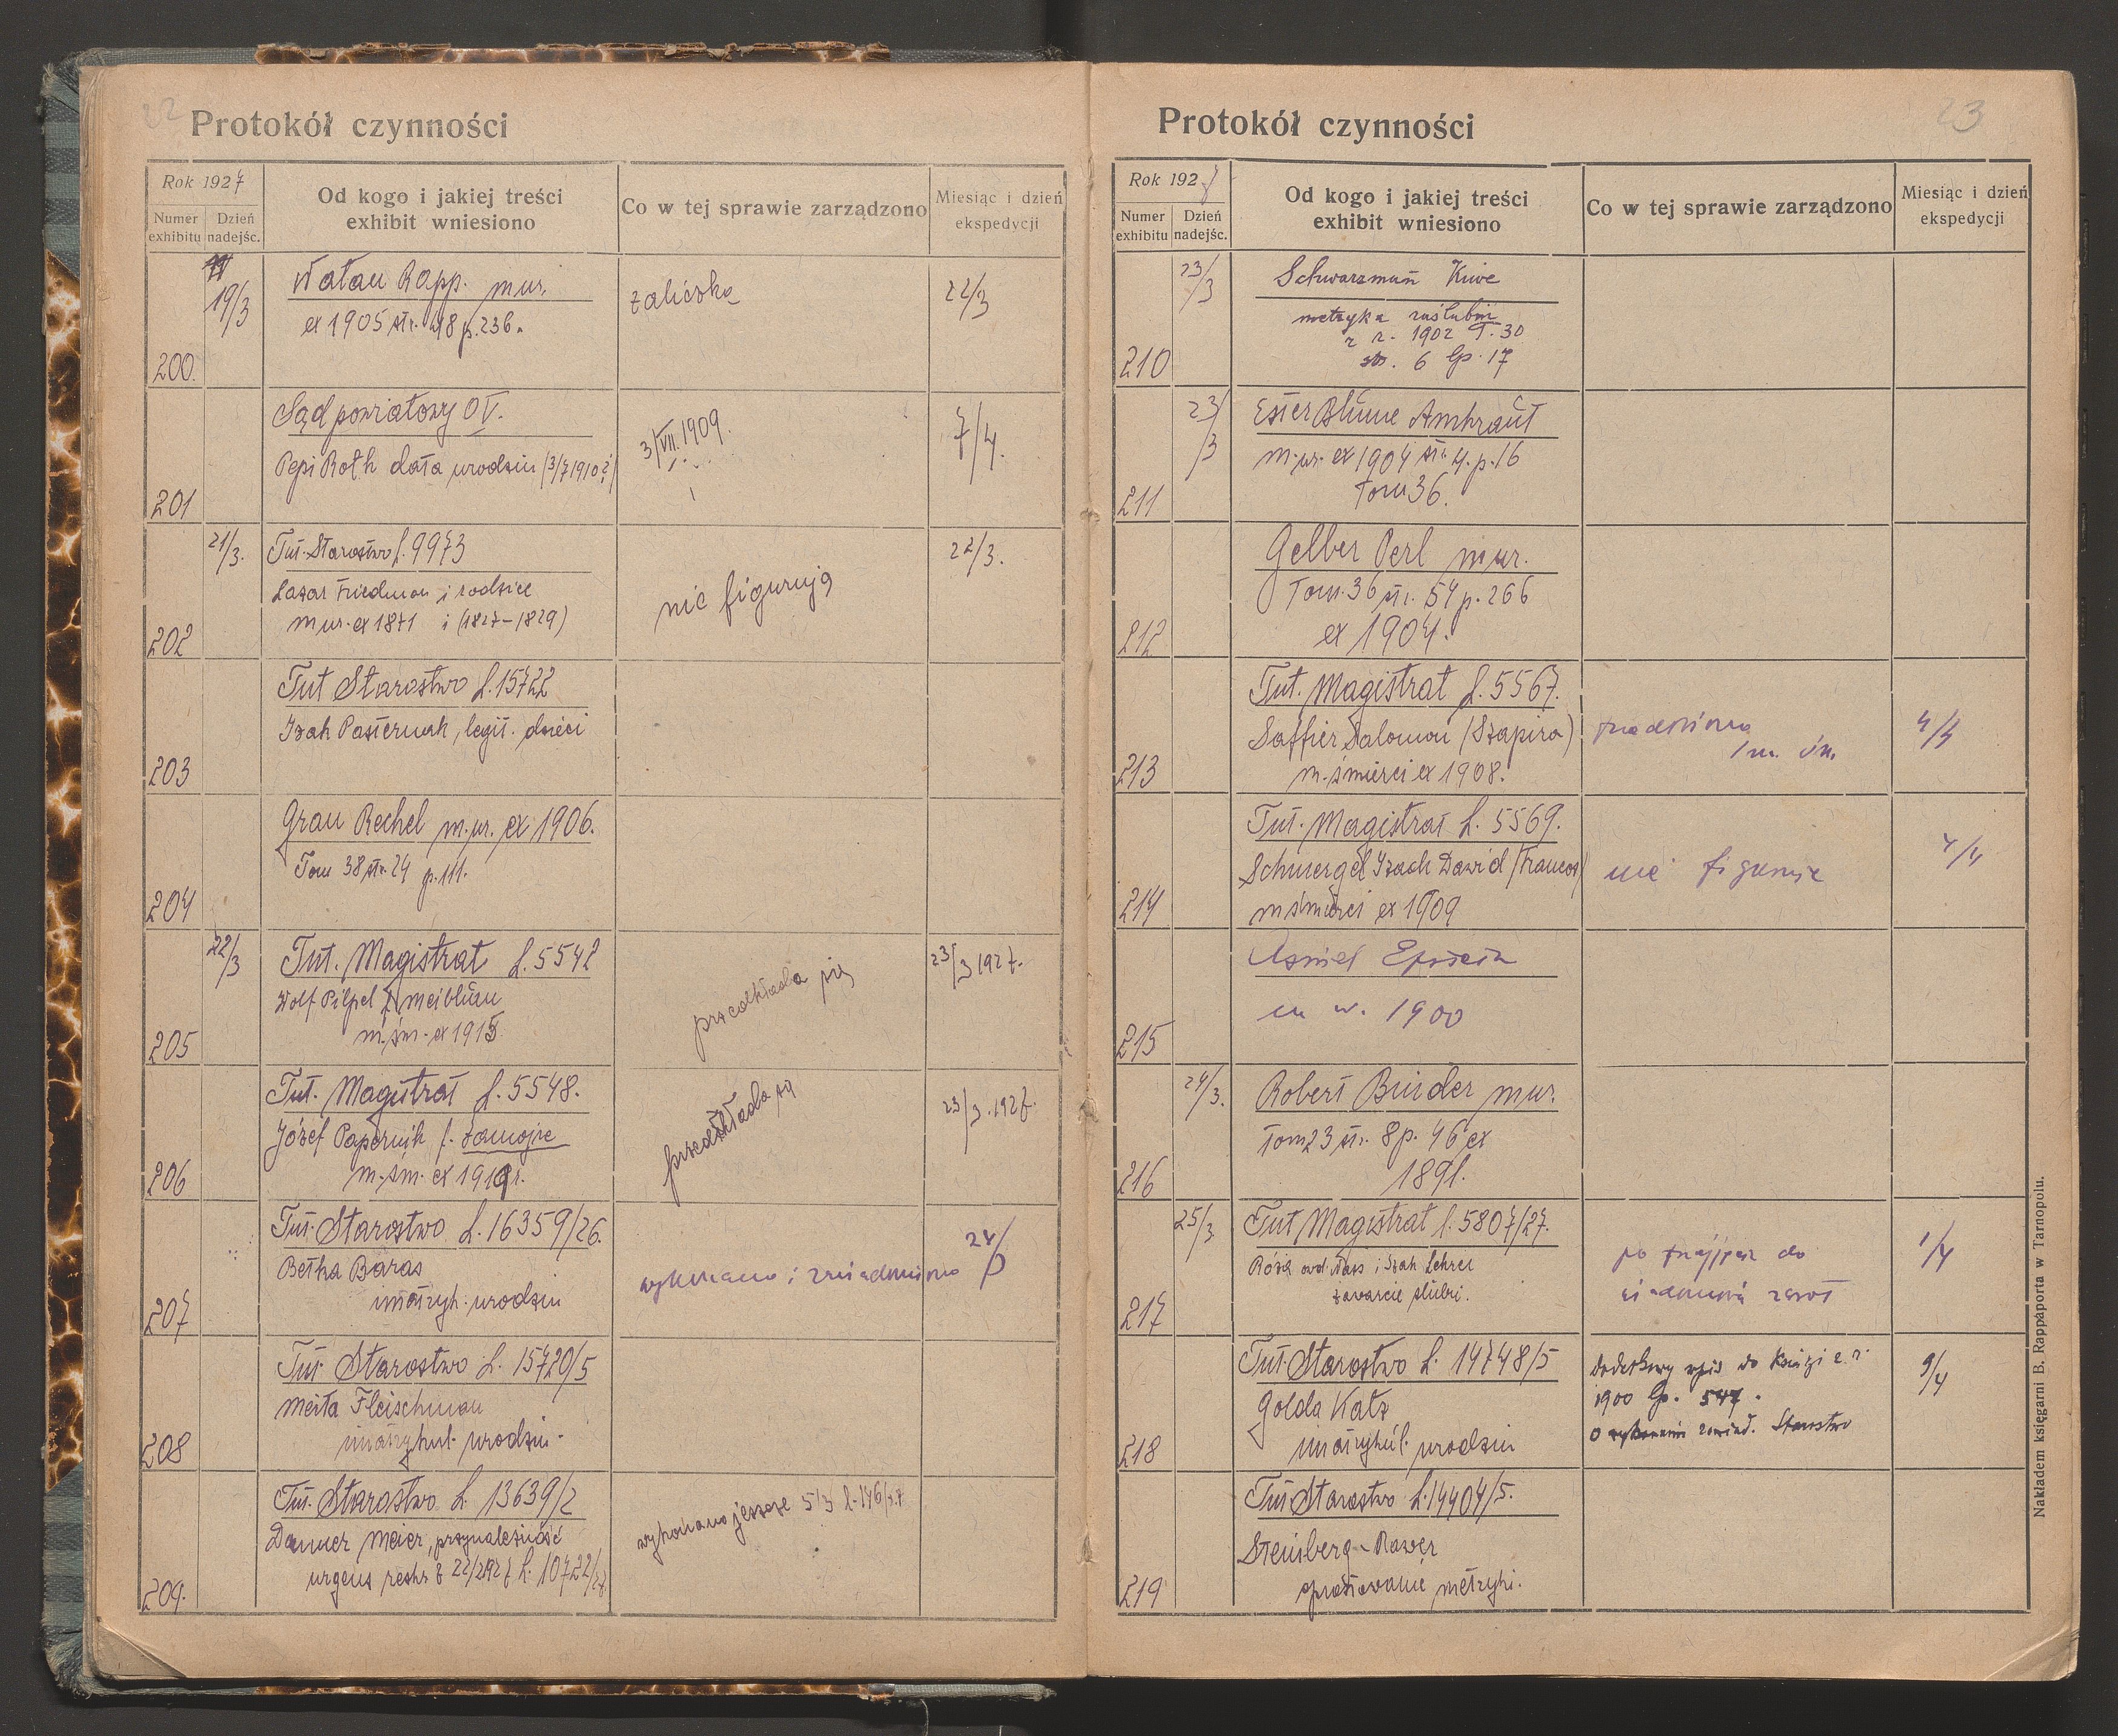 22
Protokół czynności
Rok 1927
Numer exhibitu
Dzień nadejśc.
Od kogo i jakiej treści exhibit wniesiono
Co w tej sprawie zarządzono
Miesiąc i dzień ekspedycji
200.
19/3
Natan Rapp. m ur.
ex 1905 str. 48 p. 236.
zaliczka
22/3
201
Sąd powiatowy O V.
Pepi Roth data urodzin (3/7 1910?)
3/VII. 1909.
7/4.
202
21/3.
Tut. Starostwo l. 9973
Lazar Friedman i rodzice
m ur. ex 1871 i (1827-1829)
nie figurują
22/3.
203
Tut Starostwo L. 15722
Izak Pasternak, legit. dzieci
204
Grau Rechel m. ur. ex 1906.
Tom 38 str. 24 p. 111.
205
22/3
Tut. Magistrat L. 5542
Wolf Pilpel f. Meiblum
m. śm. ex 1915
przedkłada się
23/3 1927.
206
Tut. Magistrat L. 5548.
Józef Papernik f. Zamojre
m. śm. ex 1919 r.
przedkłada się
23/3. 1927.
207
Tut. Starostwo L. 16359/26.
Betka Baras
imatryk. urodzin
wykonano i zwiadomiono
24/3
208
Tut. Starostwo L. 15720/5
Meita Fleischman
imatrykul. urodzin.
209.
Tut. Starostwo L. 13639/2
Danner Meier, przynależność
urgens reskr. z 22/2 1927 L. 10722/27.
wykonano jeszcze 5/3 l. 146/27
23
Protokół czynności
Rok 192
Numer exhibitu
Dzień nadejśc.
Od kogo i jakiej treści exhibit wniesiono
Co w tej sprawie zarządzono
Miesiąc i dzień ekspedycji
210
23/3
Schwarzman Kiwe
metryka zaślubin
z r. 1902 T. 30
str. 6 lp. 17
211
23/3
Ester Blume Amkraut
m. ur. ex 1904 str. 4. p. 16
Tom 36.
212
Gelber Perl m ur.
Tom. 36 str. 54 p. 266
ex 1904.
213
Tut. Magistrat L. 5567.
Saffier Salomon (Szapira)
m. śmierci ex 1908.
1 m. śm.
4/4
214
Tut. Magistrat L. 5569.
Schmergel Izak Dawid (Francos)
m śmierci ex 1909
nie figuruje
4/4
215
m w. 1900
216
24/3.
Robert Binder m ur.
Tom 23 str. 8 p. 46 ex
1891.
217
25/3
Tut Magistrat l. 5807/27.
Róża owd. Nass i Izak Lehrer
zawarcie ślubu.
1/4
218
Tut. Starostwo L. 14748/5
Golda Katz
imatrykul. urodzin
Dodatkowy wpis do Księgi z r.
1900 lp. 547.
O wykonaniu zawiad. Starostwo
9/4
219
Tut Starostwo L. 14404/5.
Steinberg-Rawer
sprostowanie metryki.
Nakładem księgarni B. Rappaporta w Tarnopolu.